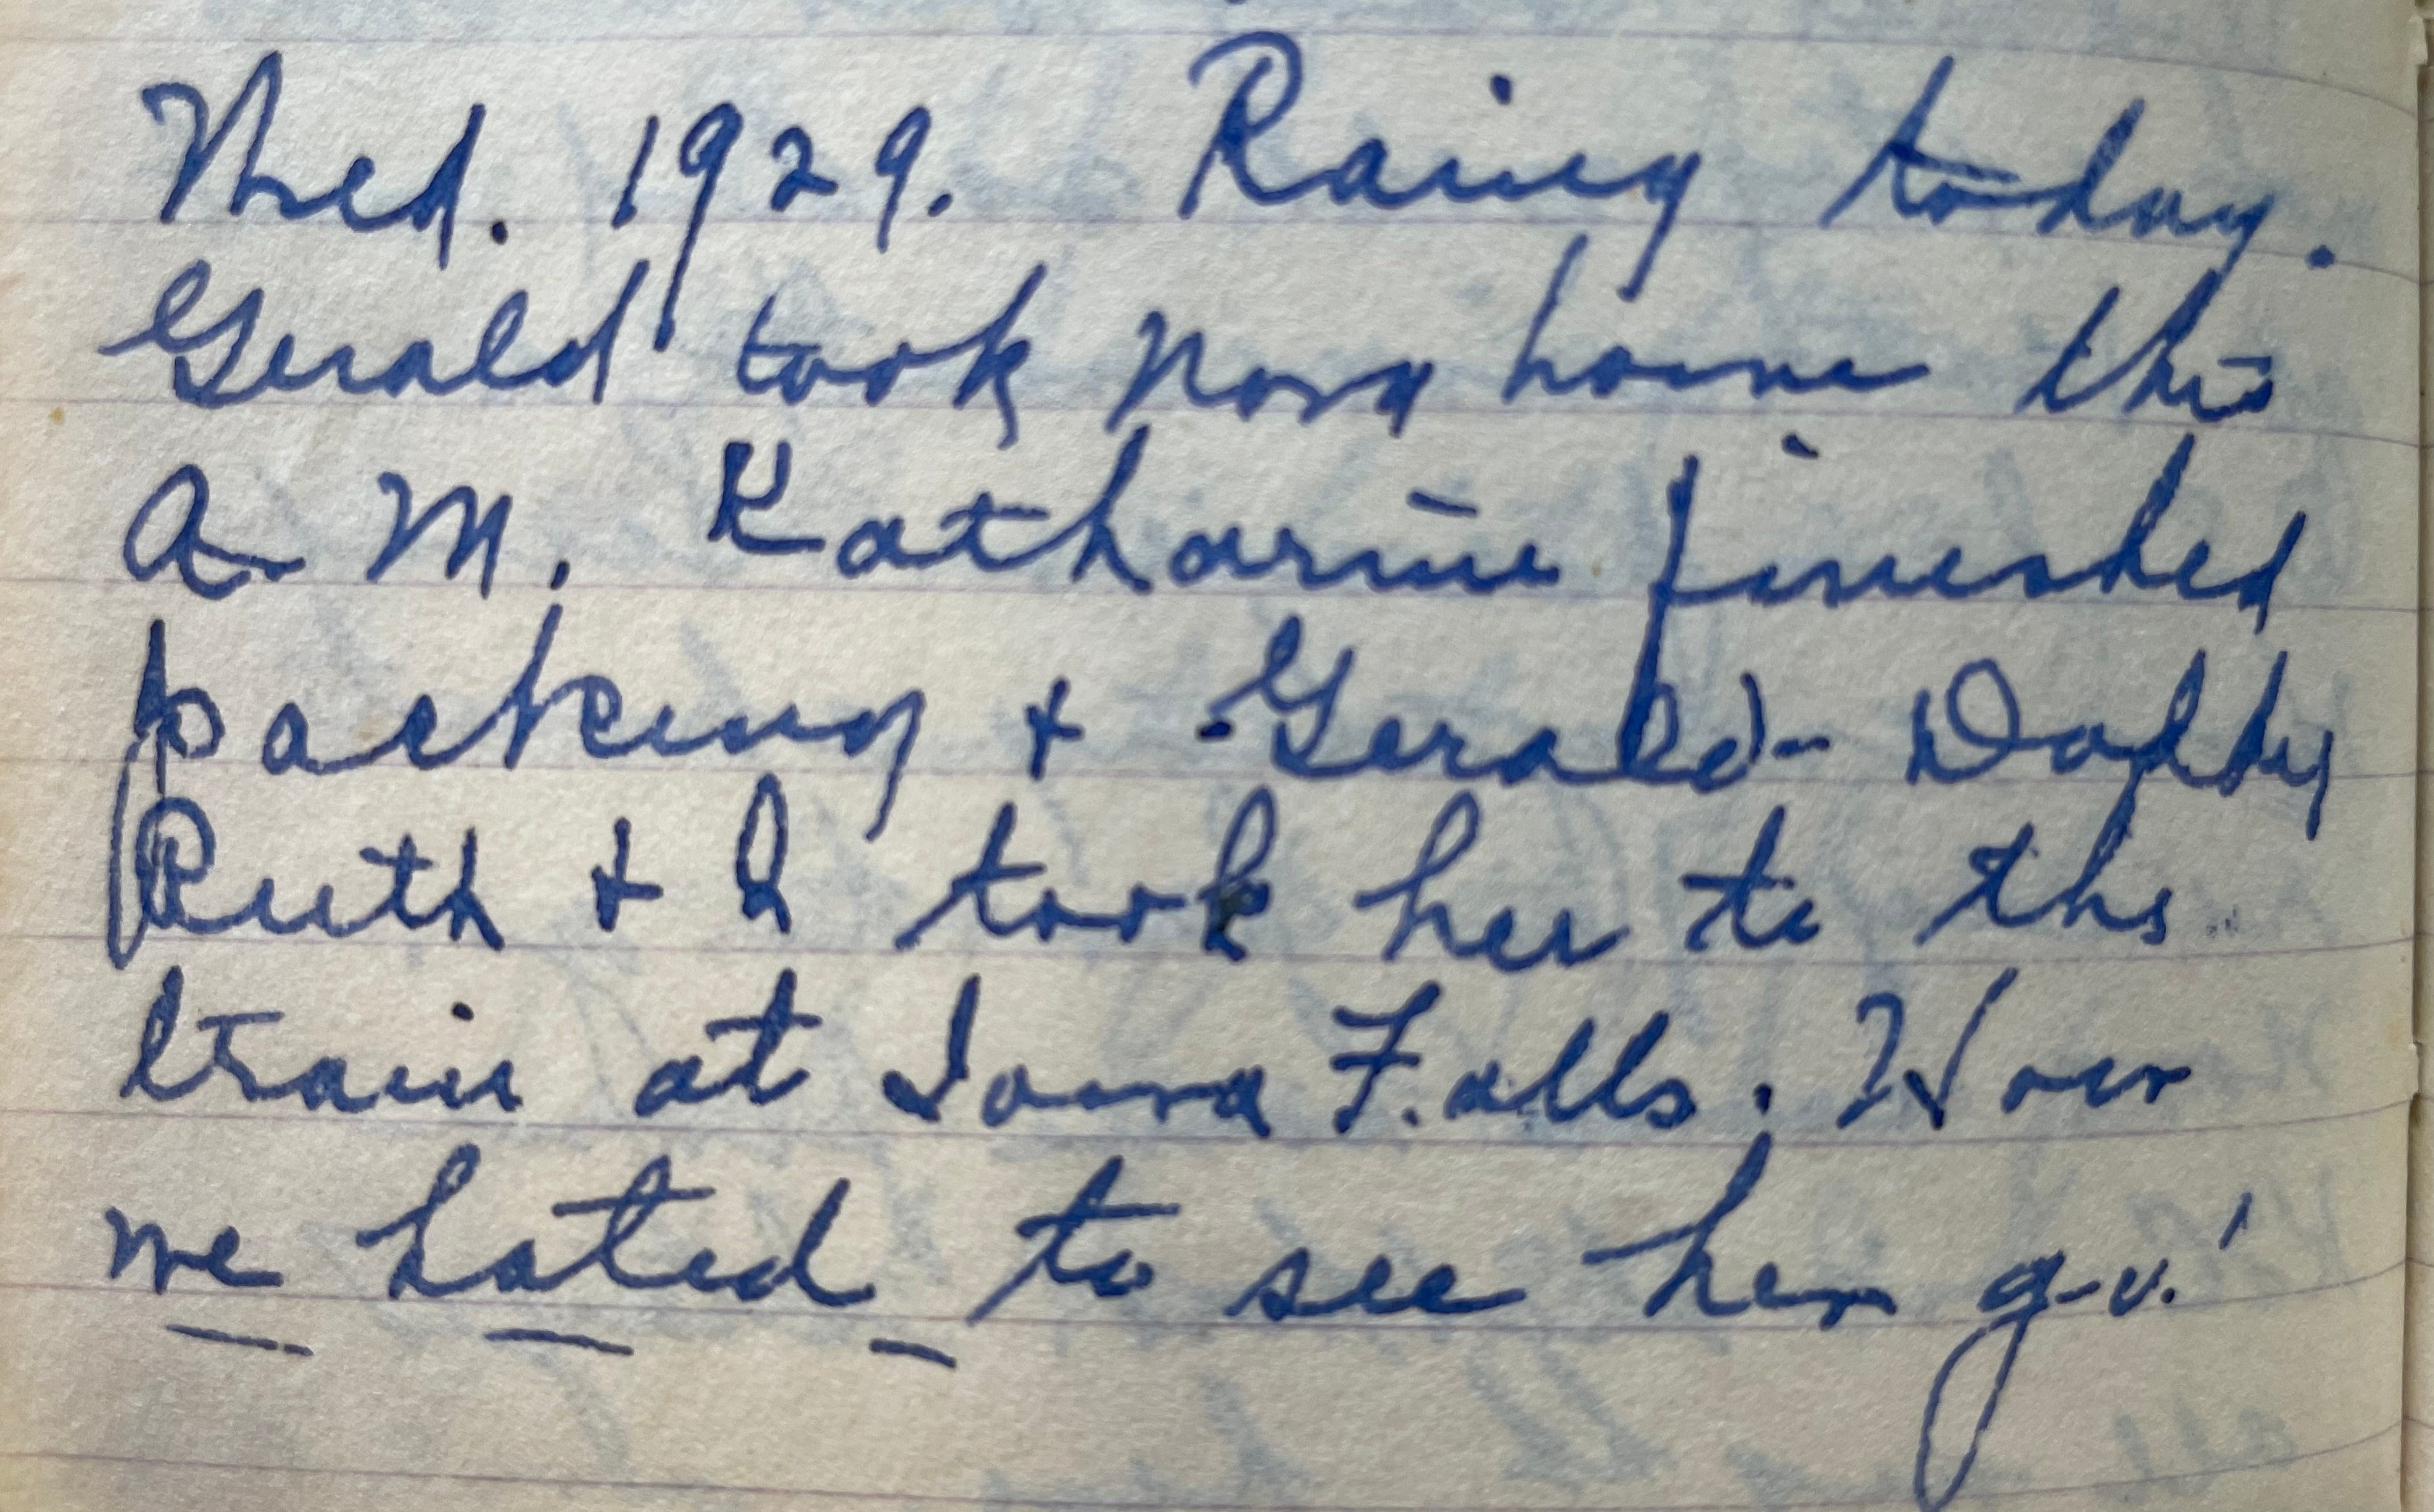 Wed. 1929. Rainy today.
Gerald took Nora home this
A.M. Katharine finished
packing + Gerald - Daddy
Ruth + I took her to the
train at Iowa Falls. How
we hated to see her go!